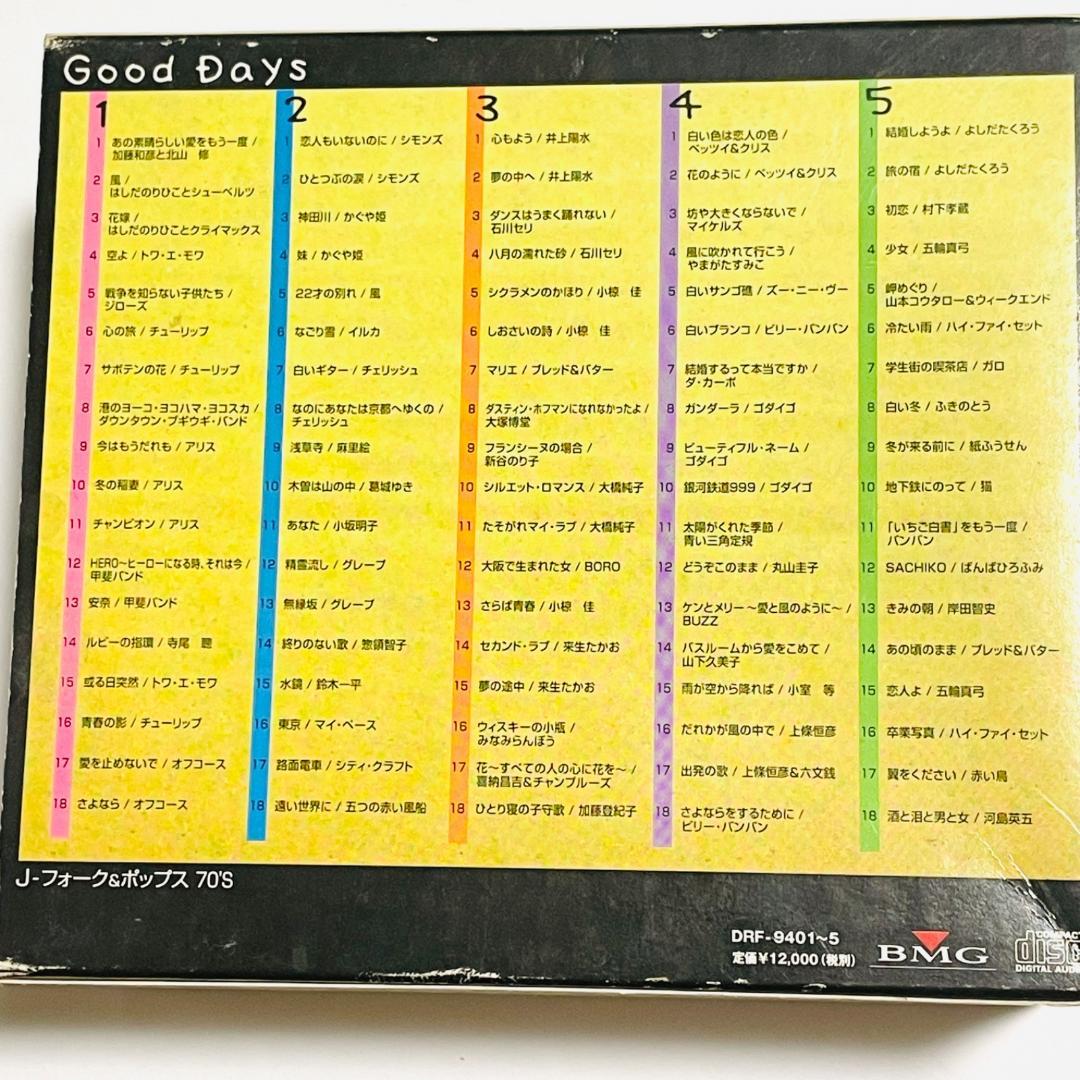 Good Days
1
1 あの素晴らしい愛をもう一度 /
加藤和彦と北山　修
2 風 /
はしだのりひことシューベルツ
3 花嫁 /
はしだのりひことクライマックス
4 空よ / トワ・エ・モワ
5 戦争を知らない子供たち /
ジローズ
6 心の旅 / チューリップ
7 サボテンの花 / チューリップ
8 港のヨーコ・ヨコハマ・ヨコスカ /
ダウンタウン・ブギウギ・バンド
9 今はもうだれも / アリス
10 冬の稲妻 / アリス
11 チャンピオン / アリス
12 HERO〜ヒーローになる時、それは今 /
甲斐バンド
13 安奈 / 甲斐バンド
14 ルビーの指環 / 寺尾　聰
15 或る日突然 / トワ・エ・モワ
16 青春の影 / チューリップ
17 愛を止めないで / オフコース
18 さよなら / オフコース
2
1 恋人もいないのに / シモンズ
2 ひとつぶの涙 / シモンズ
3 神田川 / かぐや姫
4 妹 / かぐや姫
5 22才の別れ / 風
6 なごり雪 / イルカ
7 白いギター / チェリッシュ
8 なのにあなたは京都へゆくの /
チェリッシュ
9 浅草寺 / 麻里絵
10 木曽は山の中 / 葛城ゆき
11 あなた / 小坂明子
12 精霊流し / グレープ
13 無縁坂 / グレープ
14 終りのない歌 / 惣領智子
15 水鏡 / 鈴木一平
16 東京 / マイ・ペース
17 路面電車 / シティ・クラフト
18 遠い世界に / 五つの赤い風船
3
1 心もよう / 井上陽水
2 夢の中へ / 井上陽水
3 ダンスはうまく踊れない /
石川セリ
4 八月の濡れた砂 / 石川セリ
5 シクラメンのかほり / 小椋　佳
6 しおさいの詩 / 小椋　佳
7 マリエ / ブレッド&バター
8 ダスティン・ホフマンになれなかったよ /
大塚博堂
9 フランシーヌの場合 /
新谷のり子
10 シルエット・ロマンス / 大橋純子
11 たそがれマイ・ラブ / 大橋純子
12 大阪で生まれた女 / BORO
13 さらば青春 / 小椋　佳
14 セカンド・ラブ / 来生たかお
15 夢の途中 / 来生たかお
16 ウィスキーの小瓶 /
みなみらんぼう
17 花〜すべての人の心に花を〜 /
喜納昌吉&チャンプルーズ
18 ひとり寝の子守歌 / 加藤登紀子
4
1 白い色は恋人の色 /
ベッツイ&クリス
2 花のように / ベッツイ&クリス
3 坊や大きくならないで /
マイケルズ
4 風に吹かれて行こう /
やまがたすみこ
5 白いサンゴ礁 / ズー・ニー・ヴー
6 白いブランコ / ビリー・バンバン
7 結婚するって本当ですか /
ダ・カーポ
8 ガンダーラ / ゴダイゴ
9 ビューティフル・ネーム /
ゴダイゴ
10 銀河鉄道999 / ゴダイゴ
11 太陽がくれた季節 /
青い三角定規
12 どうぞこのまま / 丸山圭子
13 ケンとメリー〜愛と風のように〜 /
BUZZ
14 バスルームから愛をこめて /
山下久美子
15 雨が空から降れば / 小室　等
16 だれかが風の中で / 上條恒彦
17 出発の歌 / 上條恒彦&六文銭
18 さよならをするために /
ビリー・バンバン
5
1 結婚しようよ / よしだたくろう
2 旅の宿 / よしだたくろう
3 初恋 / 村下孝蔵
4 少女 / 五輪真弓
5 岬めぐり /
山本コウタロー&ウィークエンド
6 冷たい雨 / ハイ・ファイ・セット
7 学生街の喫茶店 / ガロ
8 白い冬 / ふきのとう
9 冬が来る前に / 紙ふうせん
10 地下鉄にのって / 猫
11 「いちご白書」をもう一度 /
バンバン
12 SACHIKO / ばんばひろふみ
13 きみの朝 / 岸田智史
14 あの頃のまま / ブレッド&バター
15 恋人よ / 五輪真弓
16 卒業写真 / ハイ・ファイ・セット
17 翼をください / 赤い鳥
18 酒と泪と男と女 / 河島英五
J-フォーク&ポップス 70'S
DRF-9401〜5
定価¥12,000(税別)
BMG
COMPACT
disc
DIGITAL AUDIO